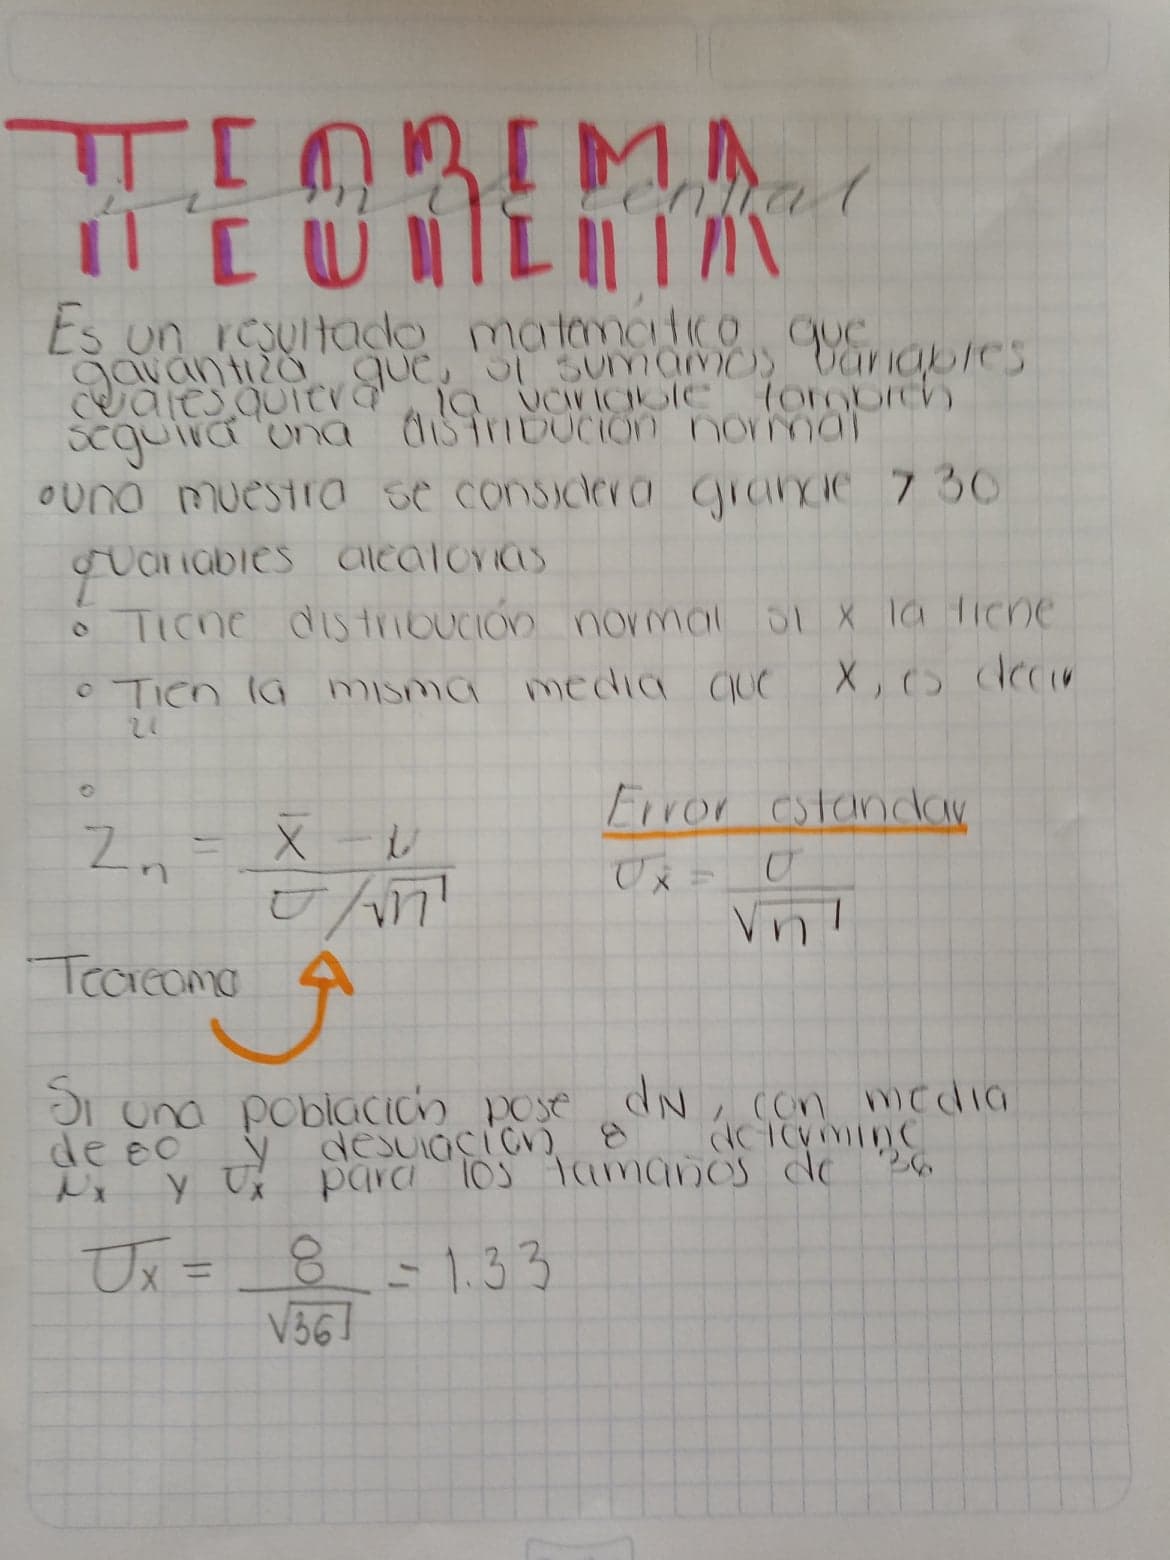 TEOREMA
limite central
Es un resultado matemático que
garantiza que, si sumamos variables
cualesquiera, la variable tambien
seguirá una distribución normal
◦ una muestra se considera grande > 30
variables alealorias
◦ Tiene distribución normal si x la tiene
◦ Tien la misma media que x, es decir
◦
Zn = x̄ - μ
σ/√n
Error estandar
σx̄ = σ
√n
Teoreoma
Si una población pose dN, con media
de 80 y desviación 8 determine
μx y σx para los tamaños de 36
σx = 8 = 1.33
√36